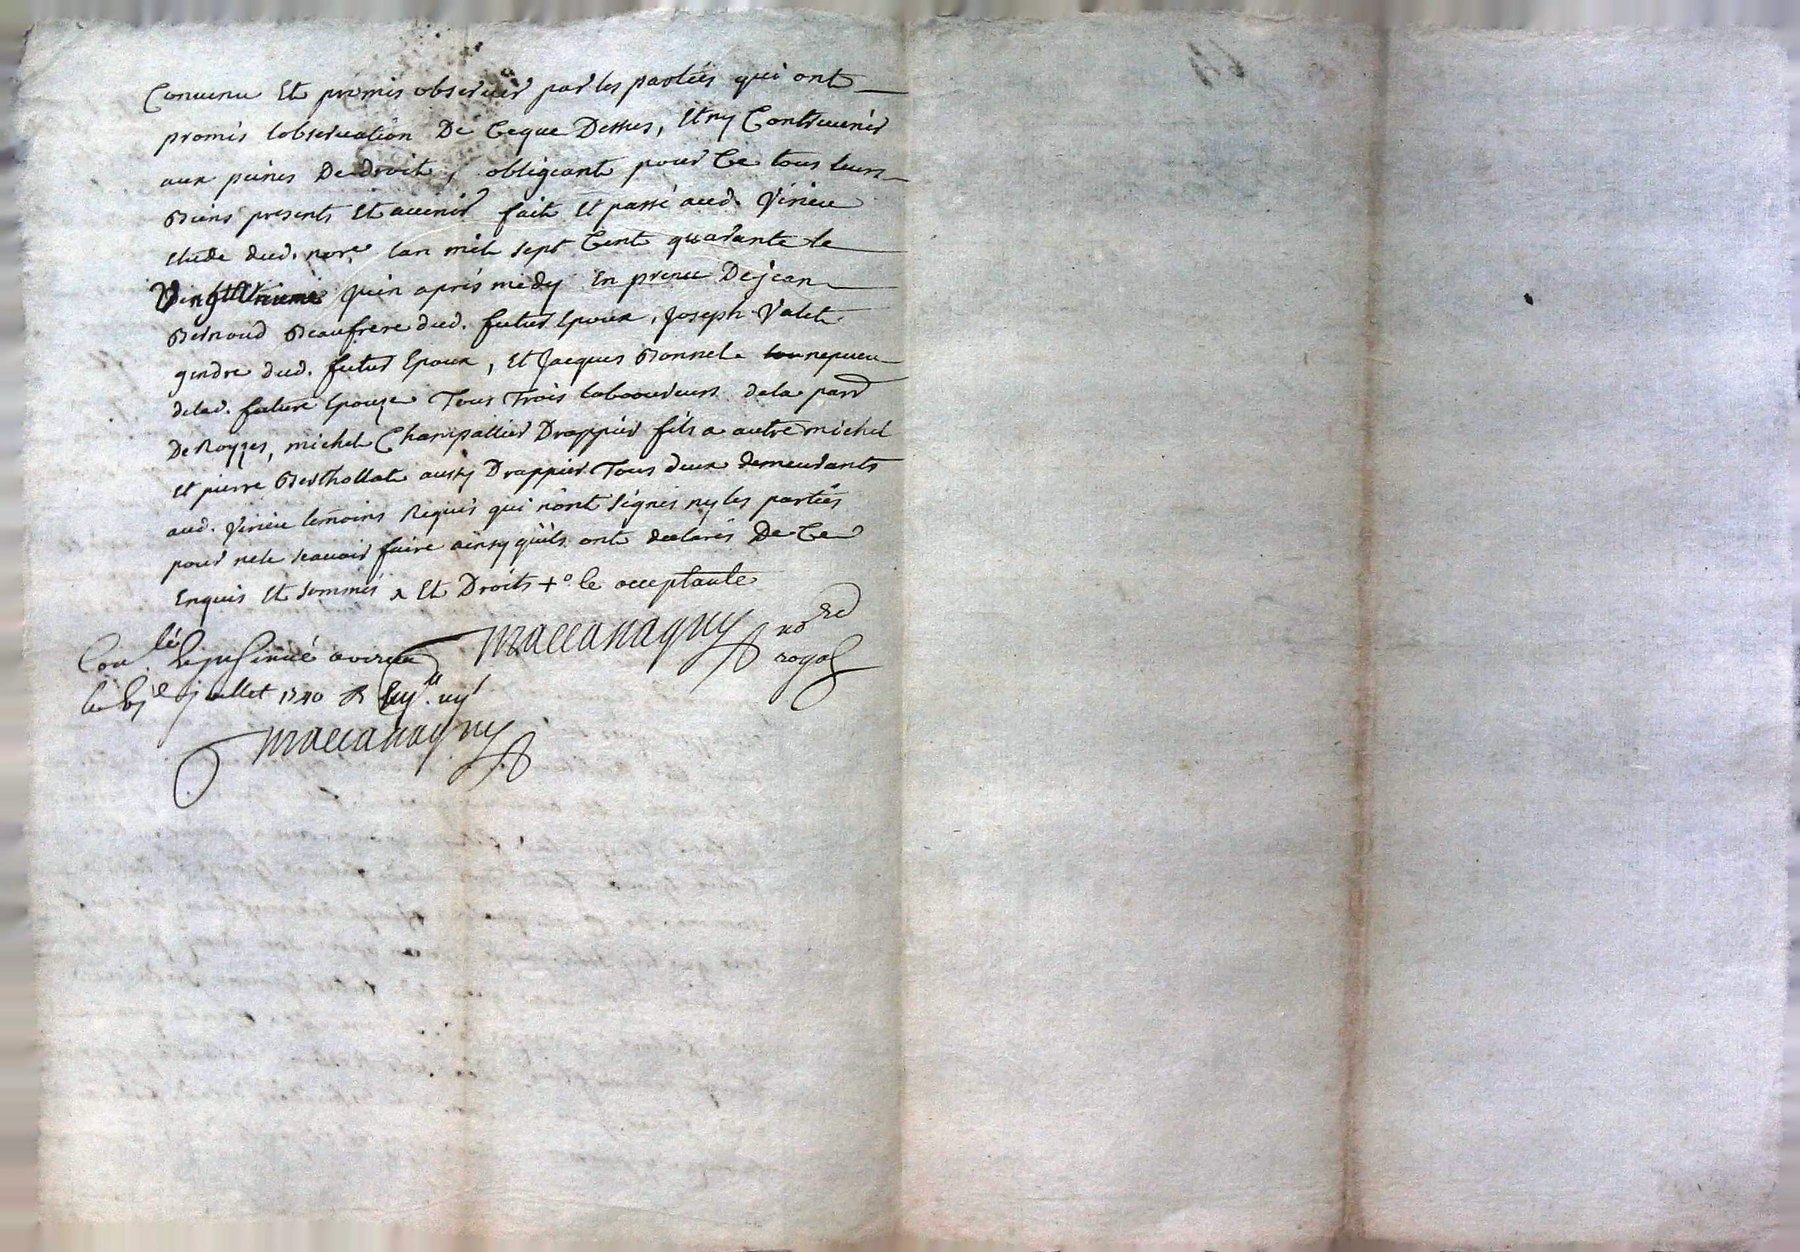 Convenu Et promis observer par les parties qui ont
promis lobservation De Ceque Dessus, Et ny Contrevenir
aux peines De droit, obligeant pour Ce tous leurs
Biens presents Et avenir fait Et passé aud. Virieu
Etude dud. nore. lan mil sept Cent quarante le
juin aprés midy En prence De jean
Bernoud Beaufrere dud. futur Epoux, Joseph Valet
gendre dud. futur Epoux, Et Jacques Bonnel nepveu
delad. future Epouze Tous Trois laboureurs dela parr
De Royzes, michel Champallier Drappier fils a autre michel
Et pierre Berthollat aussy Drappier Tous deux demeurants
aud. Virieu temoins Requis qui nont signés ny les parties
pour nele scavoir faire ainsy quils ont declarés De Ce
Enquis Et sommés Et Droits +° le acceptante
maccanagny nore
royal
Con.lé Et insinué a virieu
le juillet 1740 R
maccanagny